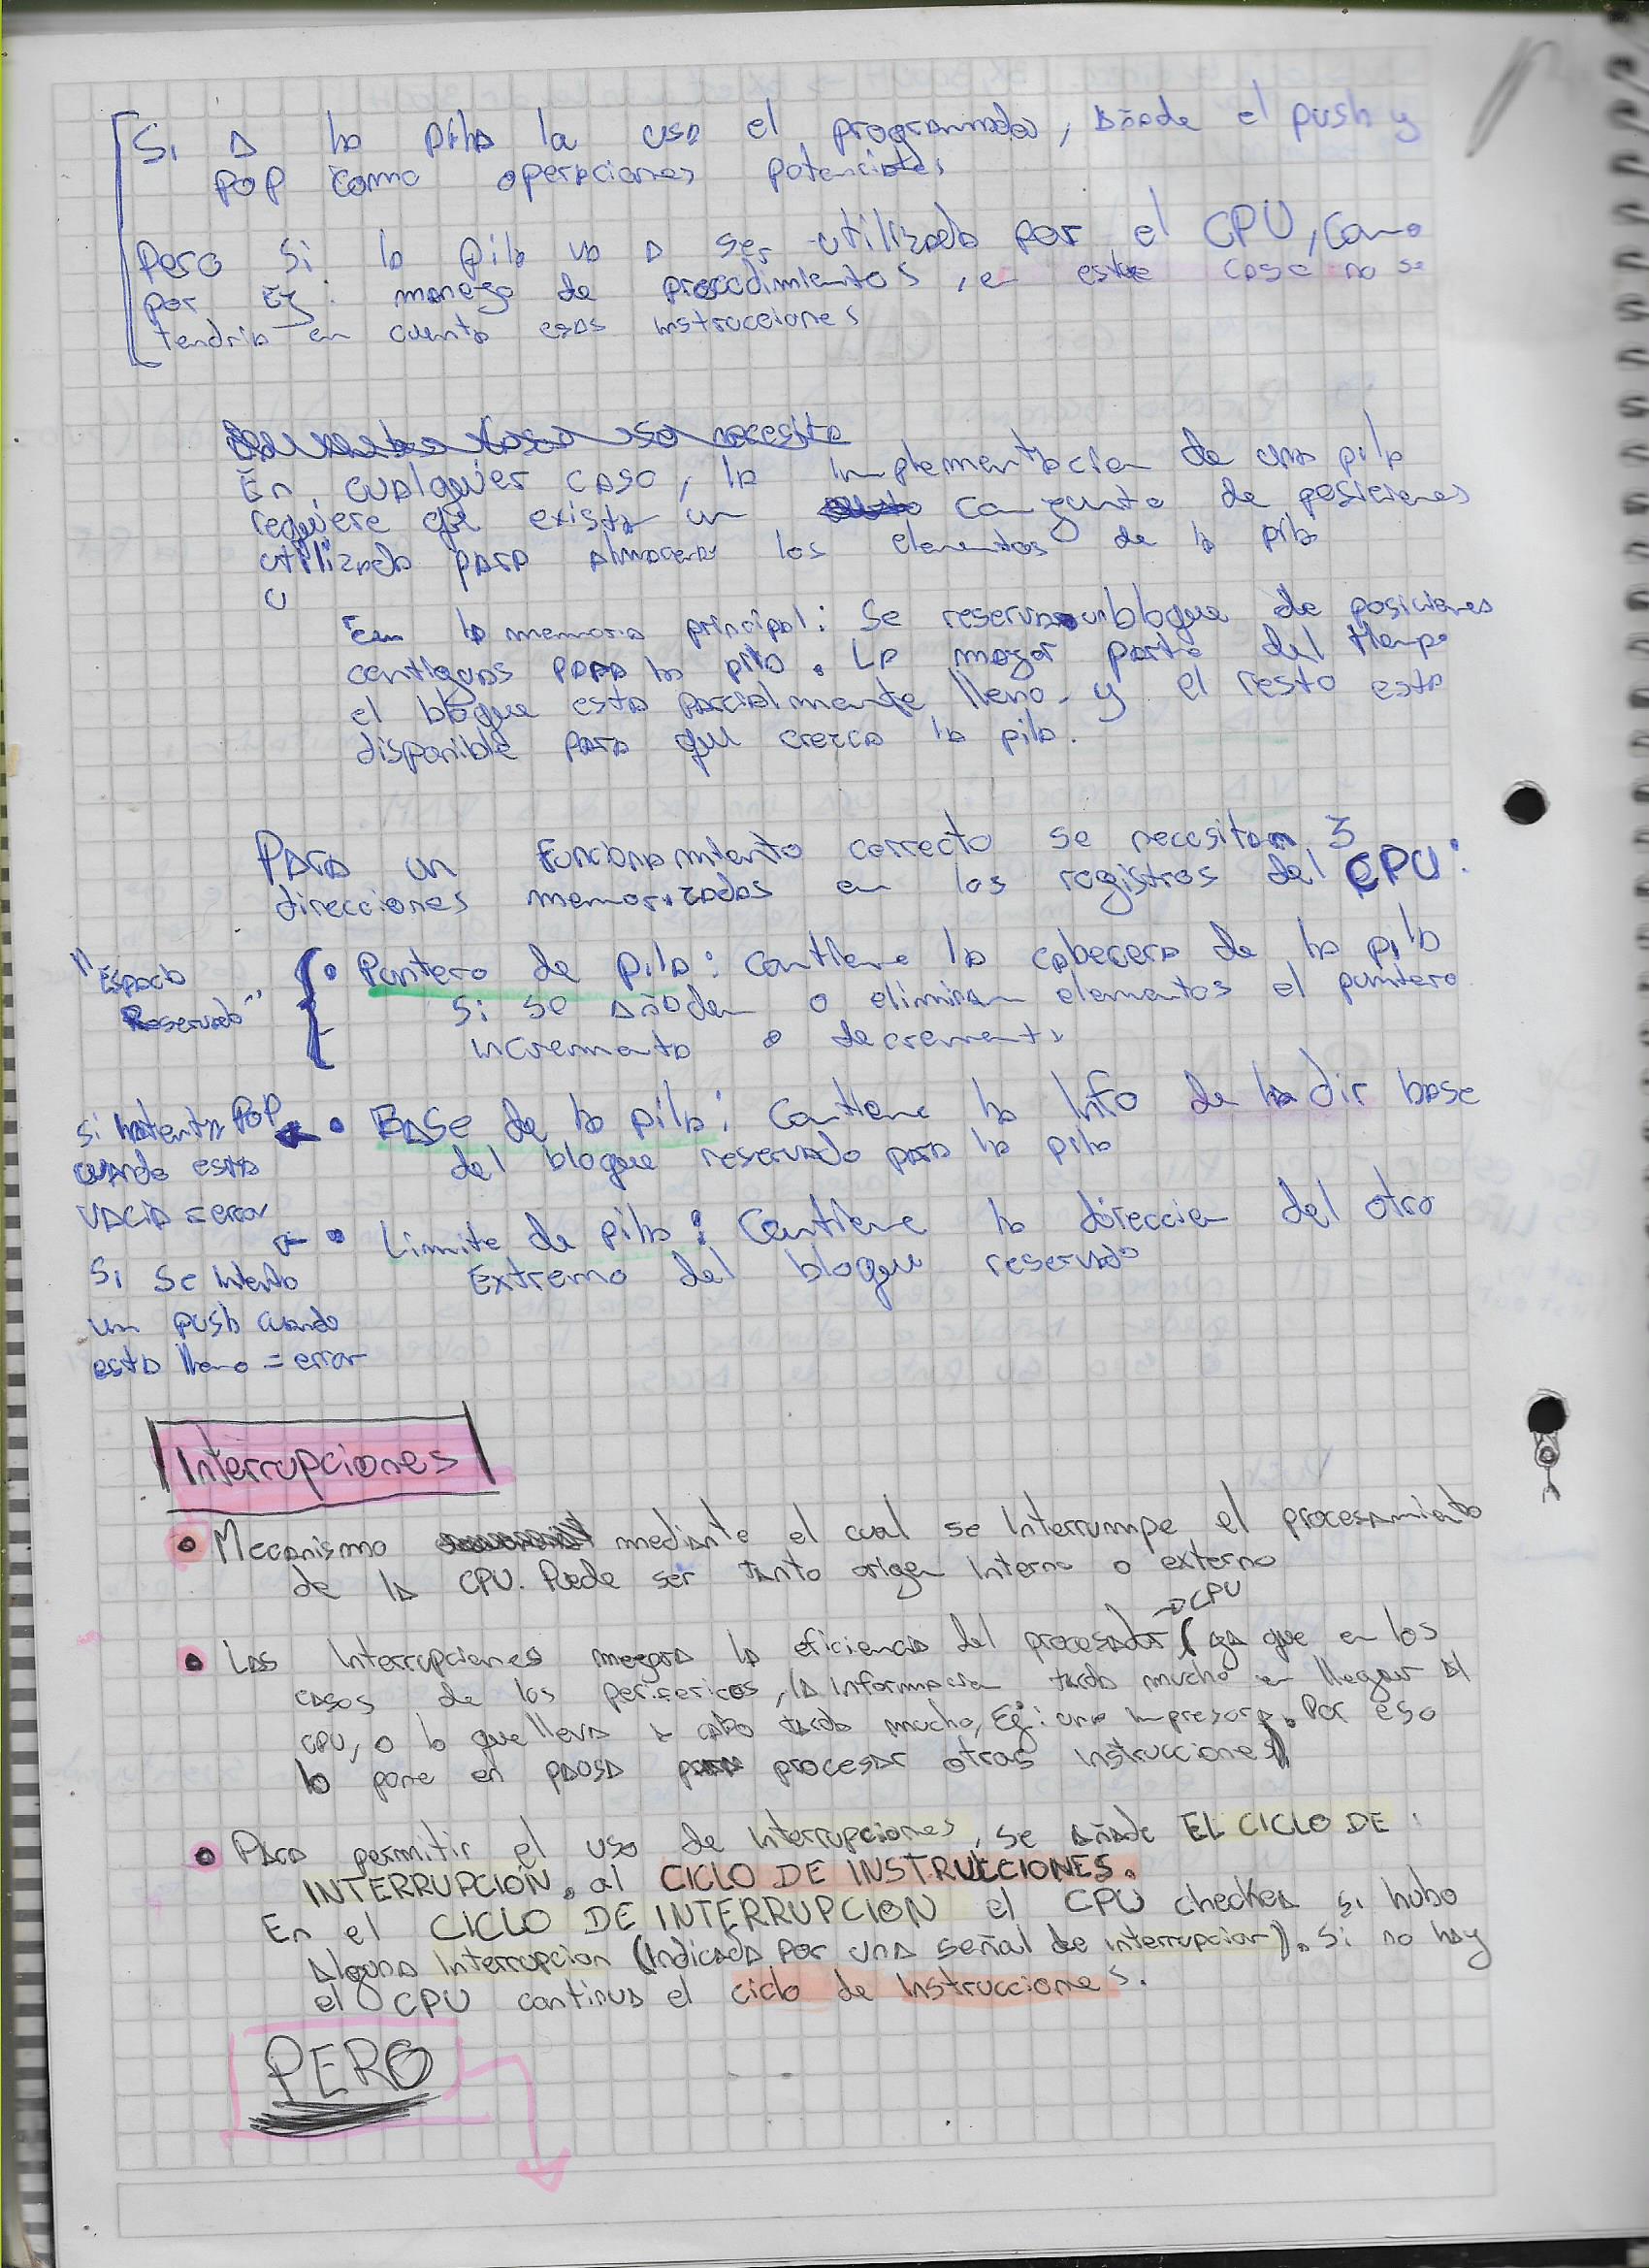 Si a la pila la usa el programador, añade el push y
pop como operaciones potenciales
Pero si la pila va a ser utilizada por el CPU, como
por Ej: manejo de procedimientos, en este caso no se
tendria en cuenta esas instrucciones
caso se necesita
En cualquier caso, la implementacion de una pila
requiere que exista un conjunto de posiciones
utilizado para almacenar los elementos de la pila
En la memoria principal: Se reserva un bloque de posiciones
contiguas para la pila. La mayor parte del tiempo
el bloque esta parcialmente lleno y el resto esta
disponible para que crezca la pila.
Para un funcionamiento correcto se necesitan 3
direcciones memorizadas en los registros del CPU:
"Espacio
Reservado"
• Puntero de pila: contiene la cabecera de la pila
Si se añaden o eliminan elementos el puntero
incrementa o decrementa
si intenta POP
cuando esta
vacia = error
• Base de la pila: Contiene la Info de la dir base
del bloque reservado para la pila
Si se intenta
un push cuando
esta lleno = error
• Limite de pila: Contiene la direccion del otro
Extremo del bloque reservado
Interrupciones
• Mecanismo mediante el cual se Interrumpe el procesamiento
de la CPU. Puede ser tanto origen Interno o externo
→ CPU
• Las Interrupciones mejora la eficiencia del procesador (ya que en los
casos de los perifericos, la informacion tarda mucho en llegar al
CPU, o lo que lleva a cabo tarda mucho, Ej: una impresora. Por eso
lo pone en pausa para procesar otras instrucciones)
• Para permitir el uso de Interrupciones, se añade EL CICLO DE
INTERRUPCION, al CICLO DE INSTRUCCIONES.
En el CICLO DE INTERRUPCION el CPU checkea si hubo
alguna Interrupcion (Indicada por una señal de interrupcion). Si no hay
el CPU continua el ciclo de Instrucciones.
PERO